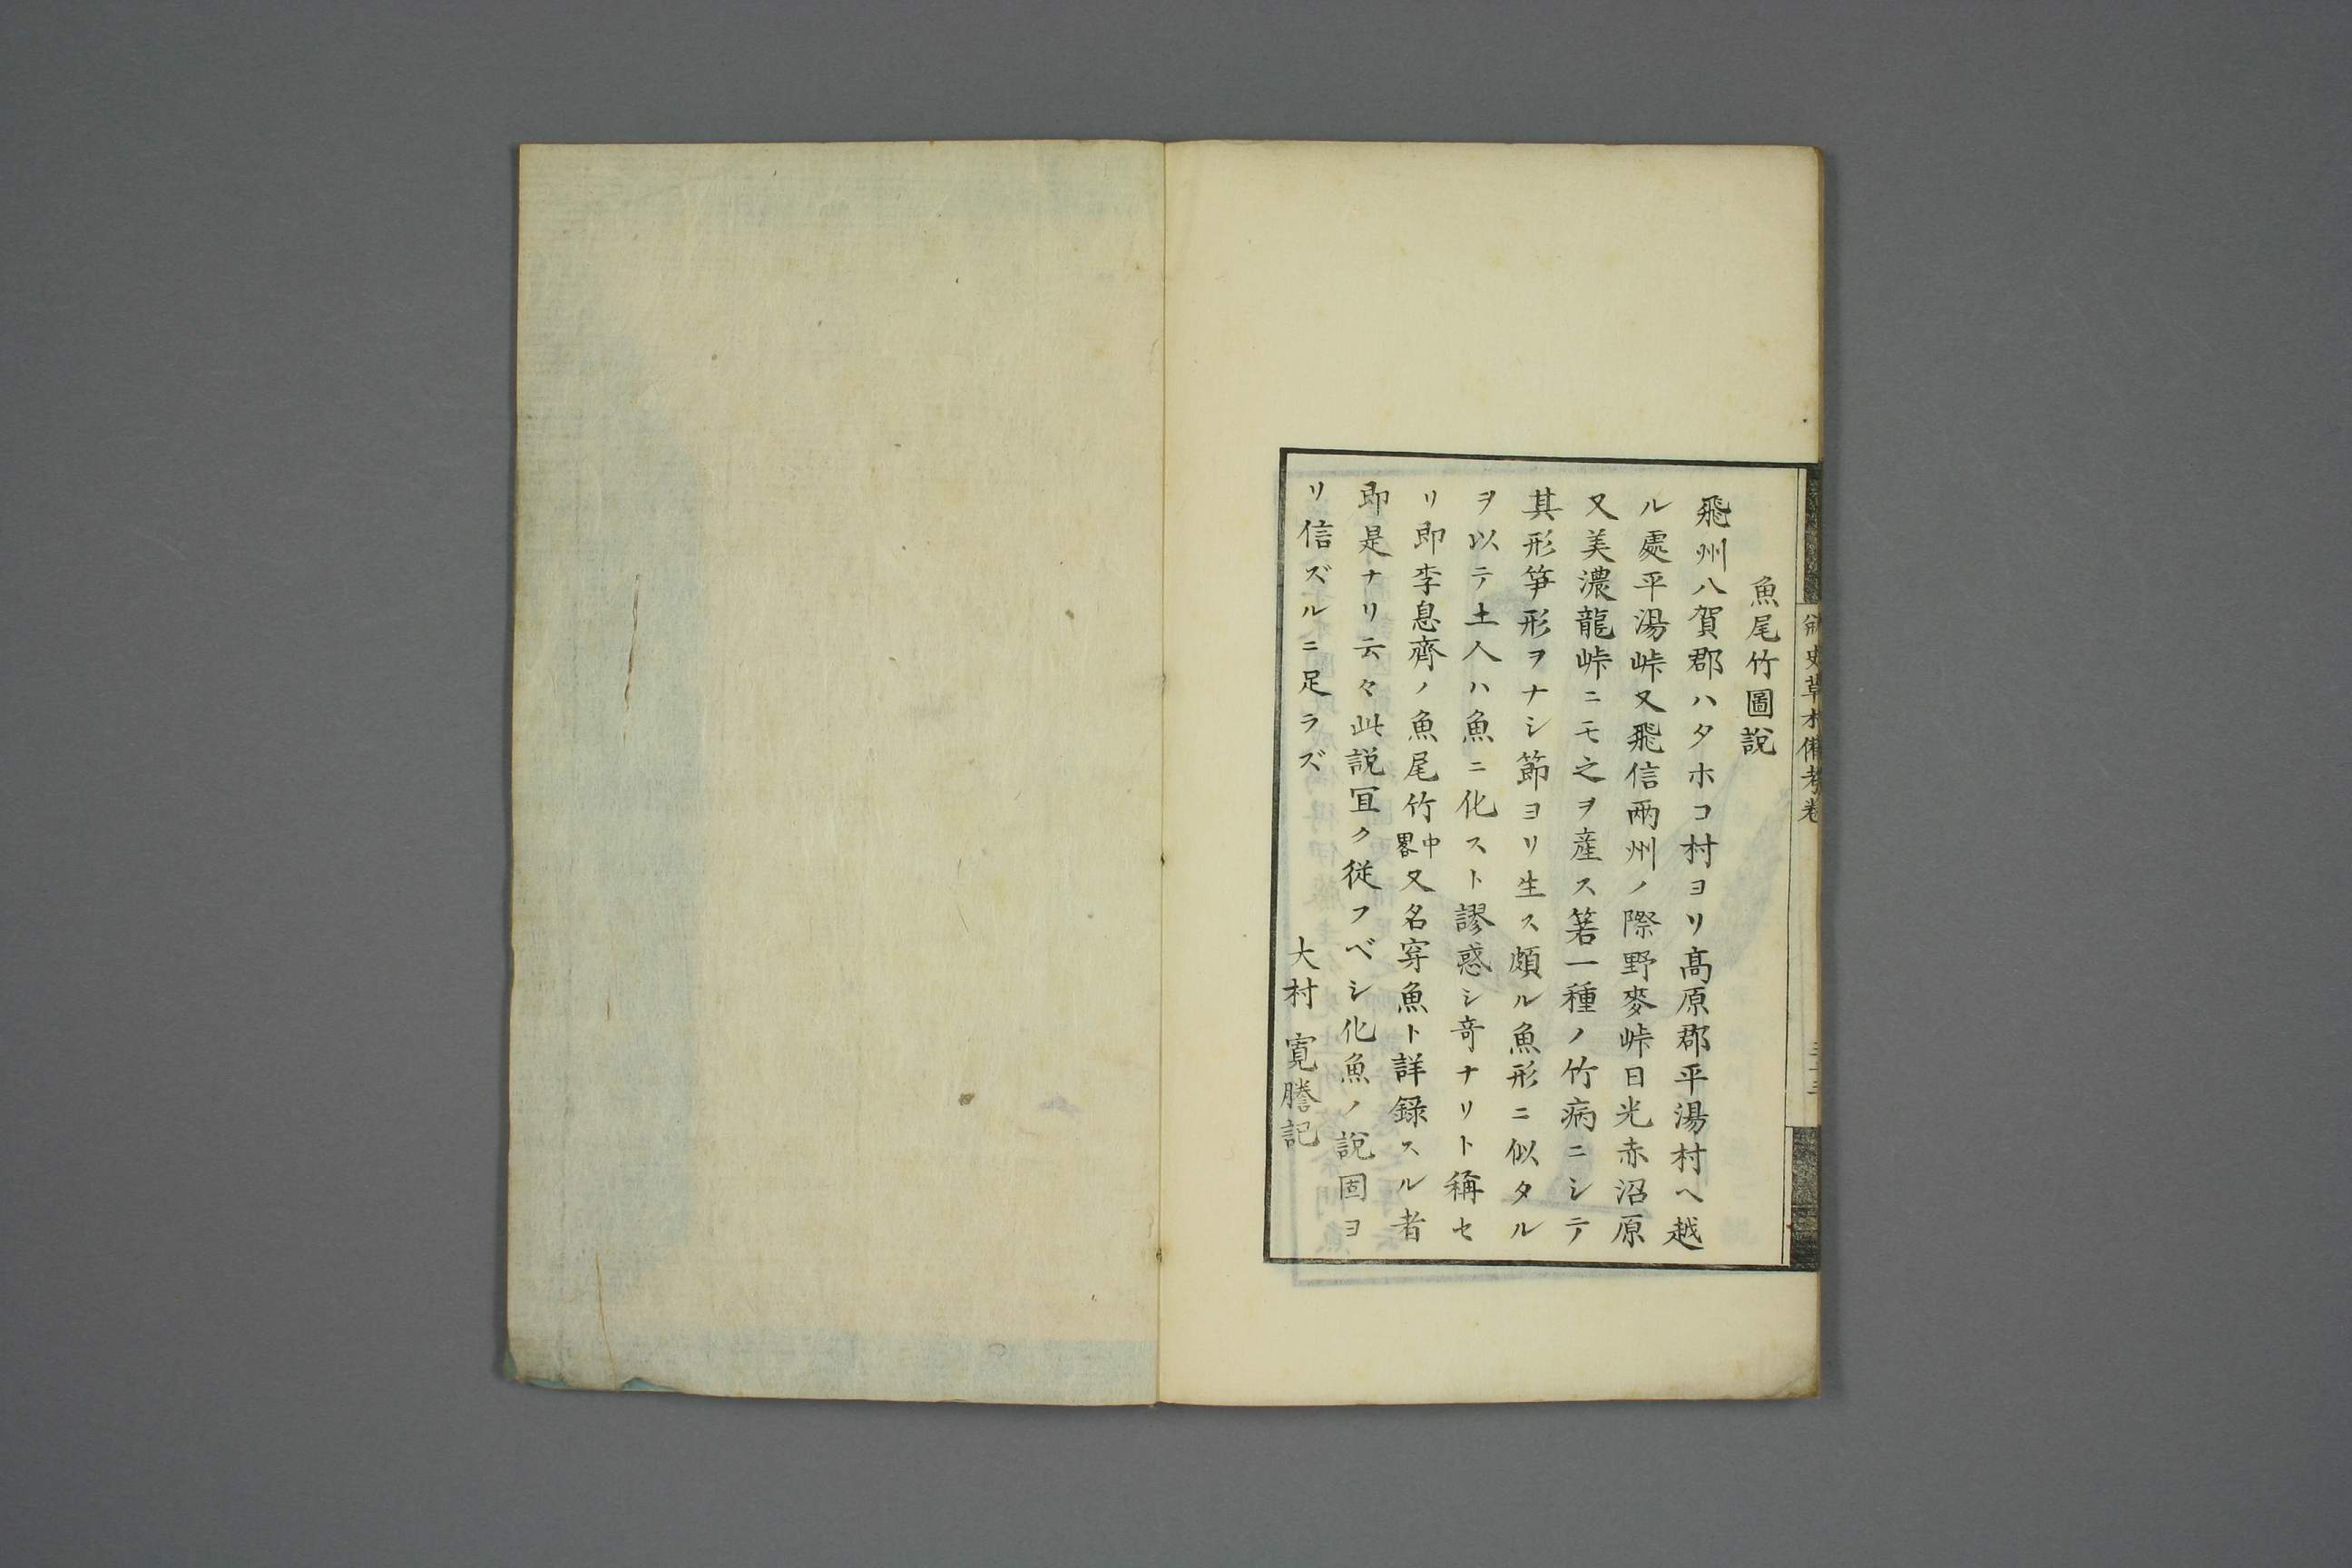 魚尾竹圖說
飛州八賀郡ハタホコ村ヨリ髙原郡平湯村ヘ越
ル處平湯峠又飛信兩州ノ際野麥峠日光赤沼原
又美濃龍峠ニモ之ヲ産ス箬一種ノ竹病ニシテ
其形笋形ヲナシ節ヨリ生ス頗ル魚形ニ似タル
ヲ以テ土人ハ魚ニ化スト謬惑シ竒ナリト稱セ
リ即李息齊ノ魚尾竹中畧又名穿魚ト詳録スル者
即是ナリ云々此説冝ク從フベシ化魚ノ說固ヨ
リ信ズルニ足ラズ
大村寛謄記
草木備考卷